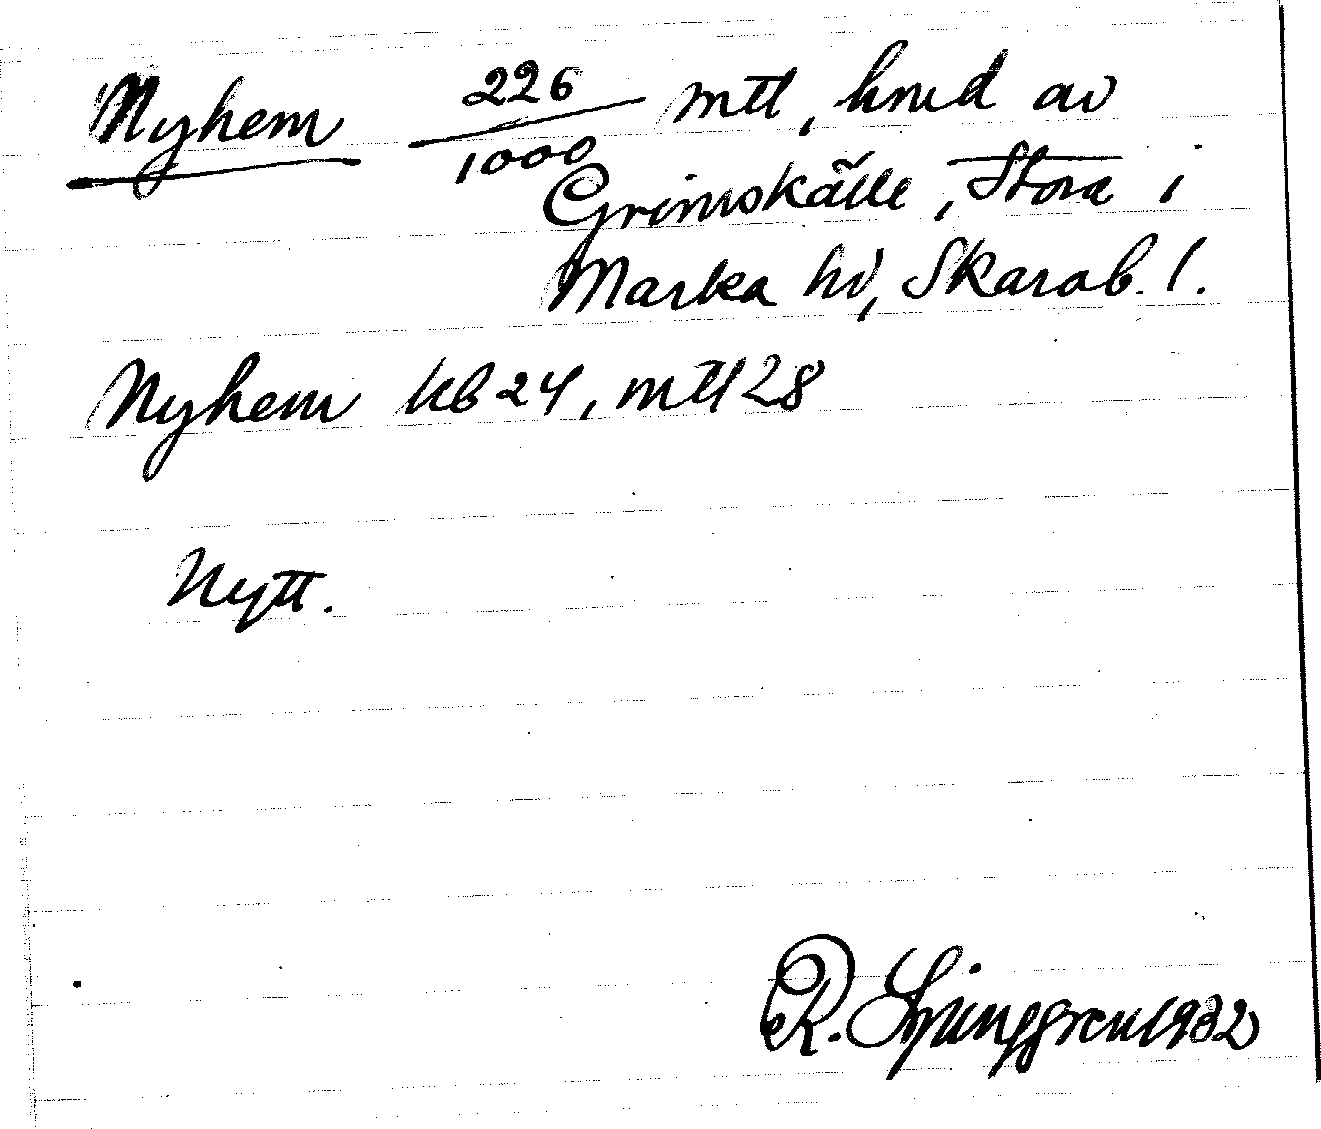 Nyhem 226/1000 mtl, hmd av
Grimskälle, Stora i
Marka hd, Skarab. l.
Nyhem kb 24, mtl 28
Nytt.
R. Ljunggren 1932